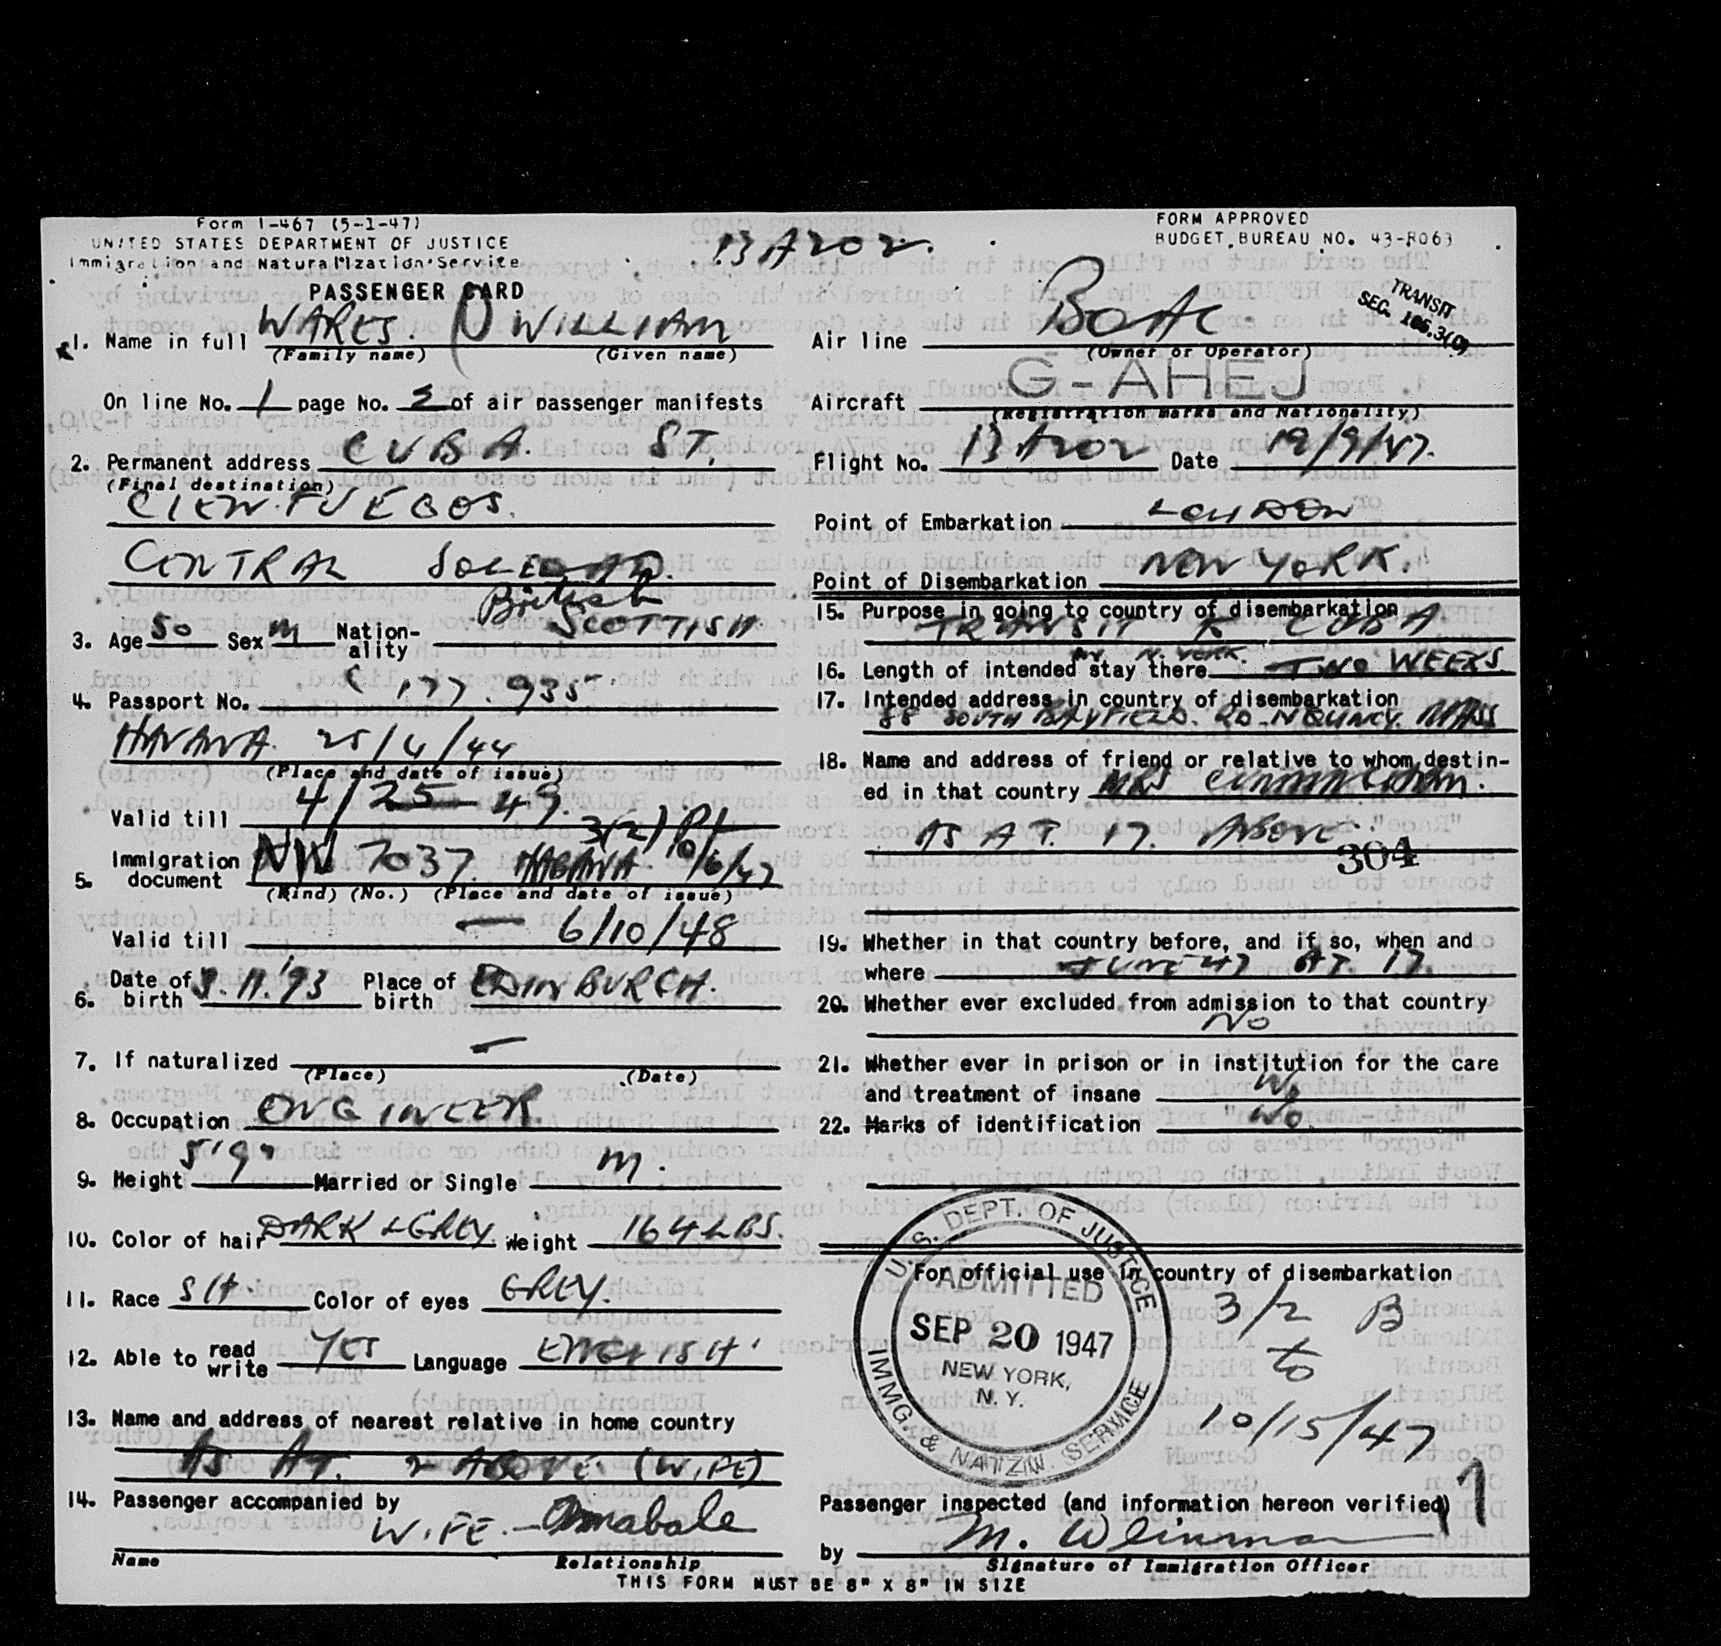 Form I-467 (5-1-47)
UNITED STATES DEPARTMENT OF JUSTICE
Immigration and Naturalization Service
13 A202.
FORM APPROVED
BUDGET BUREAU NO. 43-R063
PASSENGER CARD
TRANSIT
SEC. 106.3(0)
1. Name in full WARES. WILLIAM
(Family name) (Given name)
On line No. 1 page No. 2 of air passenger manifests
2. Permanent address CUBA. ST.
(Final destination)
CIENFUEGOS.
CENTRAL SOLEDAD.
British
3. Age 50 Sex M Nation-ality SCOTTISH
4. Passport No. C 177.935
HAVANA. 25/4/44
(Place and date of issue)
Valid till 4/25-49.
3(2) Pt
5. Immigration document NIV 7037. HABANA 10/6/47
(Kind) (No.) (Place and date of issue)
Valid till 6/10/48
6. Date of birth 3.11.'93 Place of birth EDINBURGH.
7. If naturalized —
(Place) (Date)
8. Occupation ENGINEER.
9. Height 5'9" Married or Single M.
10. Color of hair DARK & GREY Weight 164 LBS.
11. Race SH. Color of eyes GREY.
12. Able to read write YES Language ENGLISH
13. Name and address of nearest relative in home country
AS AT. 2 ABOVE (WIFE)
14. Passenger accompanied by
WIFE. - Annabale
Name Relationship
Air line BOAC.
(Owner or Operator)
Aircraft G-AHEJ
(Registration marks and Nationality)
Flight No. 13 A202 Date 19/9/47.
Point of Embarkation LONDON
Point of Disembarkation NEW YORK.
15. Purpose in going to country of disembarkation
TRANSIT TO CUBA
IN N. YORK.
16. Length of intended stay there TWO WEEKS
17. Intended address in country of disembarkation
88 SOUTH BAYFIELD. RD. N QUINCY. MASS
18. Name and address of friend or relative to whom destin-
ed in that country MRS
AS AT. 17. ABOVE.
304
19. Whether in that country before, and if so, when and
where JUNE 47 AT. 17.
20. Whether ever excluded from admission to that country
NO
21. Whether ever in prison or in institution for the care
and treatment of insane NO
22. Marks of identification NO.
For official use in country of disembarkation
U. S. DEPT. OF JUSTICE
ADMITTED
SEP 20 1947
NEW YORK,
N. Y.
IMMG. & NATZN. SERVICE
3/2 B
to
10/15/47
Passenger inspected (and information hereon verified)
by M. Weinman
Signature of Immigration Officer
THIS FORM MUST BE 8" X 8" IN SIZE